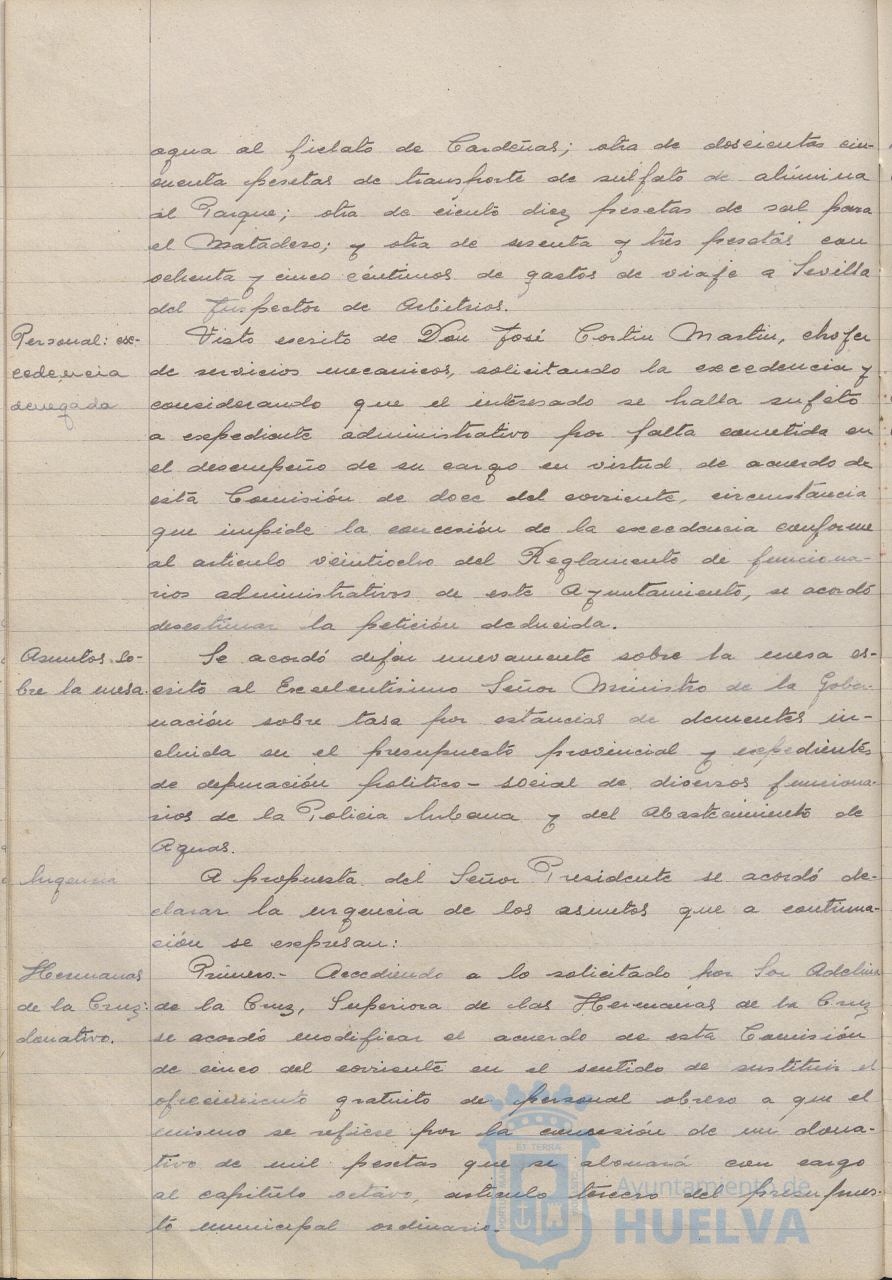 agua al fielato de Cardeñas; otra de doscientas cin-
cuenta pesetas de transporte de sulfato de alúmina
al Parque; otra de ciento diez pesetas de sal para
el Matadero; y otra de sesenta y tres pesetas con
ochenta y cinco céntimos de gastos de viaje a Sevilla
del Inspector de Arbitrios.
Personal: ex-
cedencia
denegada
Visto escrito de Don José Cortin Martin, chofer
de servicios mecanicos, solicitando la excedencia y
considerando que el interesado se halla sujeto
a expediente administrativo por falta cometida en
el desempeño de su cargo en virtud de acuerdo de
esta Comisión de doce del corriente, circunstancia
que impide la concesión de la excedencia conforme
al articulo veintiocho del Reglamento de funciona-
rios administrativos de este Ayuntamiento, se acordó
desestimar la petición deducida.
Asuntos so-
bre la mesa.
Se acordó dejar nuevamente sobre la mesa es-
crito al Excelentisimo Señor Ministro de la Gober-
nación sobre tasa por estancias de dementes in-
cluida en el presupuesto provincial y expedientes
de depuración politico-social de diversos funciona-
rios de la Policia Urbana y del Abastecimiento de
Aguas.
Urgencia
A propuesta del Señor Presidente se acordó de-
clarar la urgencia de los asuntos que a continua-
ción se expresan:
Hermanas
de la Cruz:
donativo.
Primero.- Accediendo a lo solicitado por Sor Adelina
de la Cruz, Superiora de las Hermanas de la Cruz
se acordó modificar el acuerdo de esta Comisión
de cinco del corriente en el sentido de sustituir el
ofrecimiento gratuito de personal obrero a que el
mismo se refiere por la concesión de un dona-
tivo de mil pesetas que se abonará con cargo
al capitulo octavo, articulo tercero del presupues-
to municipal ordinario.-
Ayuntamiento de
HUELVA